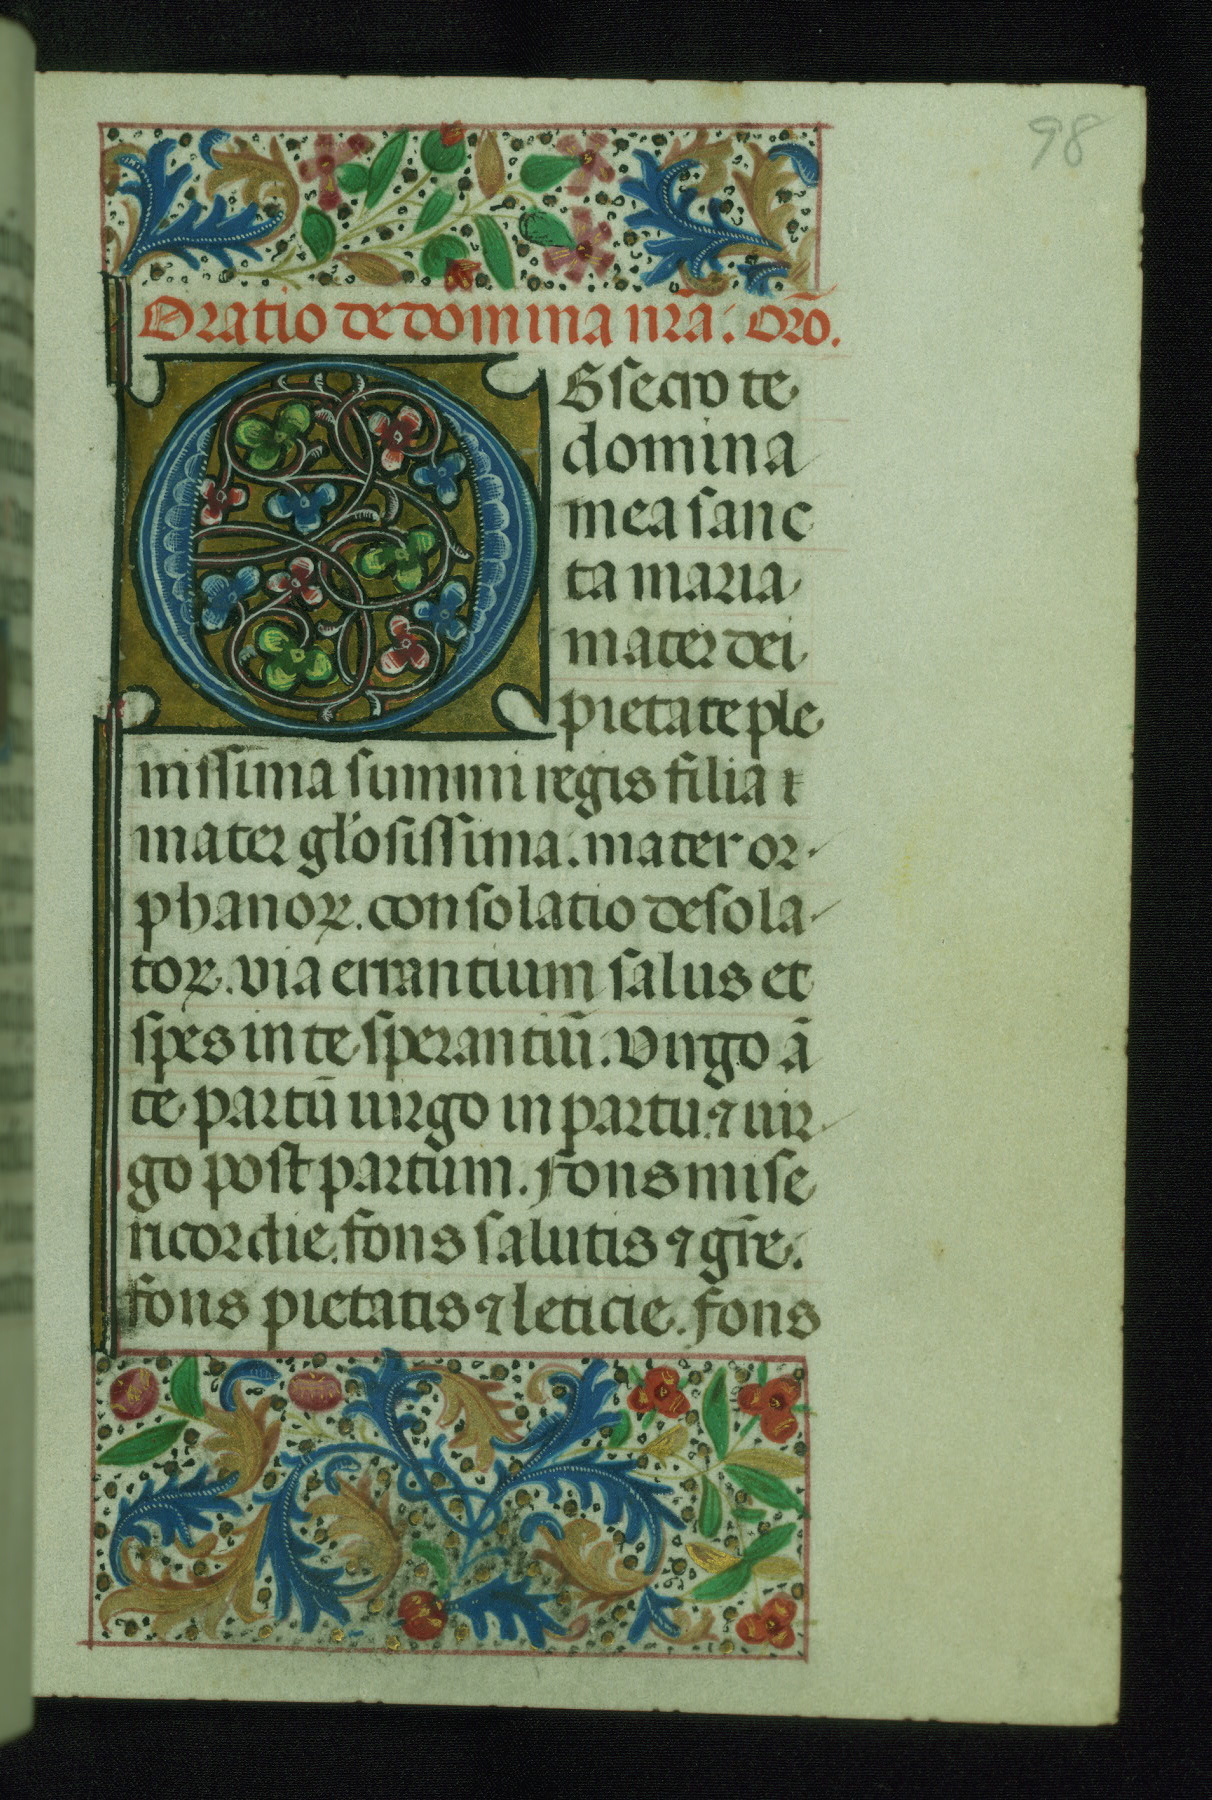 98
Oratio de domina nr̄a. Or̄o.
OBsecro te
domina
mea sanc
ta maria
mater dei
pietate ple
nissima summi regis filia ⁊
mater gl'osissima. mater or-
phanoꝝ. consolatio desola-
toꝝ. via errantium salus et
spes in te sperantiū. Virgo ā
te partū uirgo in partu. ⁊ uir-
go post partum. Fons mise
ricordie. fons salutis ⁊ gr̄e.
fons pietatis ⁊ leticie. fons